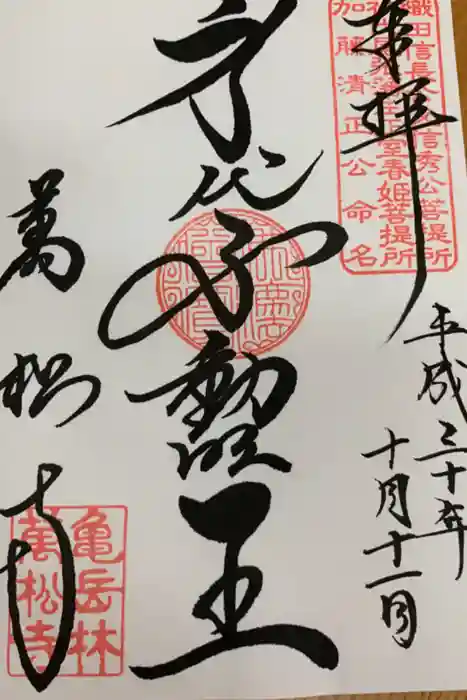 奉拝
織田信長 信秀公菩提所
正室春姫菩提所
加藤清正公命名
平成三十年
十月十一日
身代不動明王
萬松寺
亀岳林
萬松寺